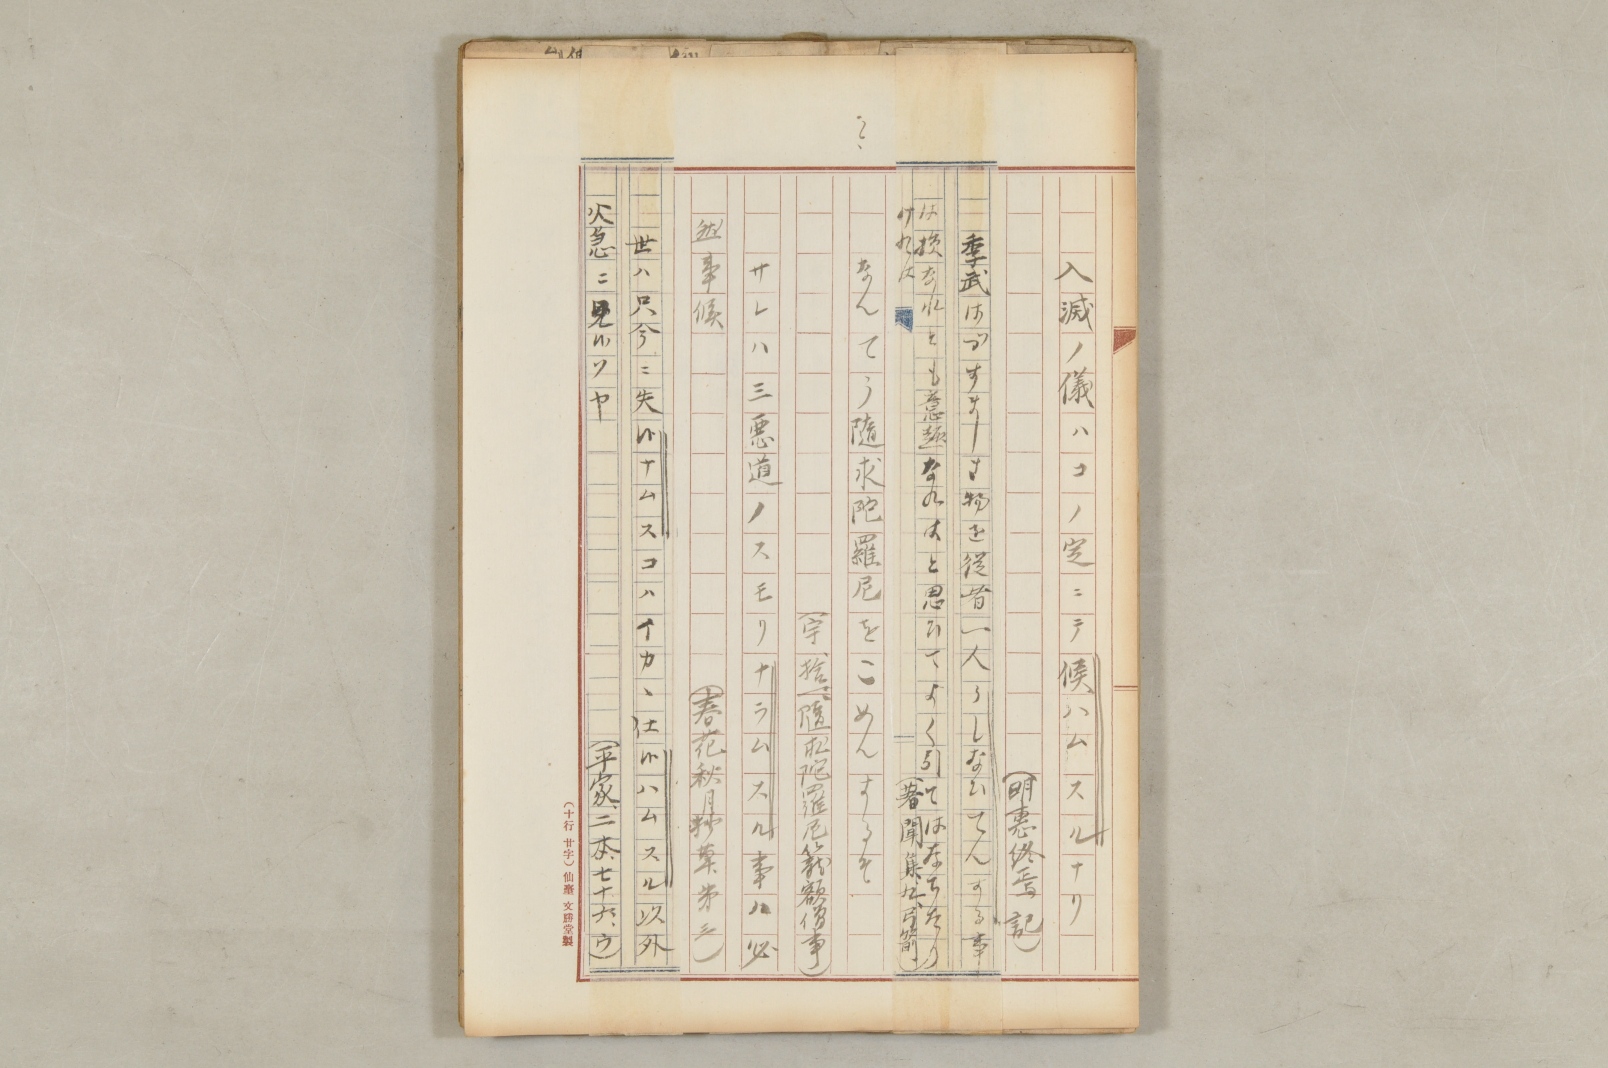 入滅ノ儀ハコノ定ニテ候ハムスルナリ
(明恵終焉記)
季武はかすまーき物を従者一人うしなひてんする事
は損なれとも意趣なれはと思ひてよく引てはなちたり
けれは
(著聞集、九、弓箭)
なんてう随求陀羅尼をこめんするそ
(宇拾、随求陀羅尼籠額僧事)
サレハ三悪道ノスモリナラムスル事ハ必
然事候
(春花秋月抄草第三)
世ハ只今ニ失ルナムスコハイカヽ仕ルハムスル以外
火急ニ見ルソヤ
(平家、二本、七十六、ウ)
(十行 廿字) 仙臺 文勝堂製